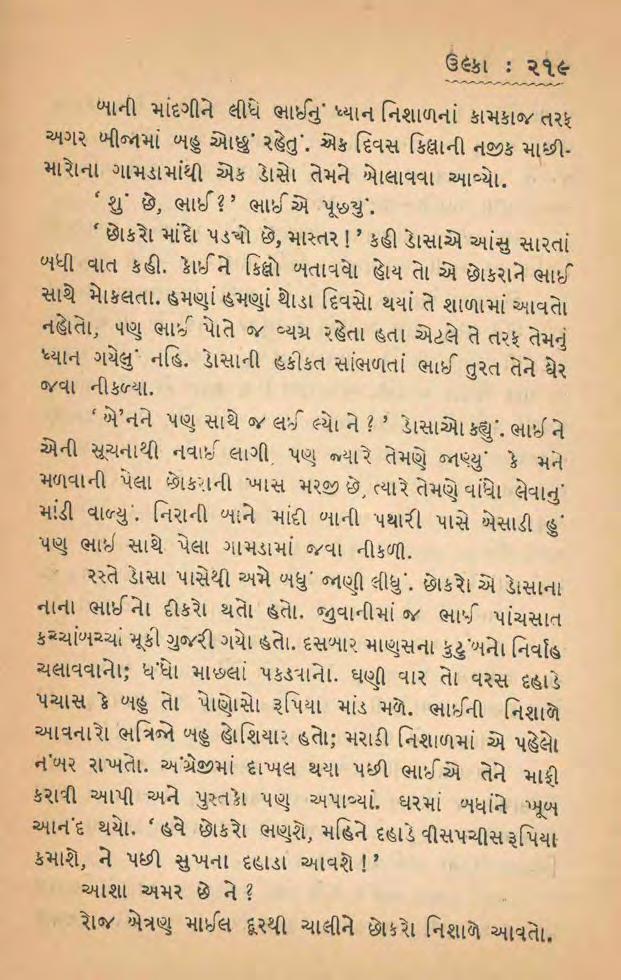 ઉલ્કા : ૨૧૯
બાની માંદગીને લીધે ભાઈનું ધ્યાન નિશાળનાં કામકાજ તરફ
અગર બીજામાં બહુ ઓછું રહેતું. એક દિવસ કિલ્લાની નજીક માછી-
મારોના ગામડામાંથી એક ડોસો તેમને બોલાવવા આવ્યો.
‘ શું છે, ભાઈ?’ ભાઈએ પૂછ્યું.
‘ છોકરો માંદો પડ્યો છે, માસ્તર !’ કહી ડોસાએ આંસુ સારતાં
બધી વાત કહી. કોઈને કિલ્લો બતાવવો હોય તો એ છોકરાને ભાઈ
સાથે મોકલતા. હમણાં હમણાં થોડા દિવસો થયાં તે શાળામાં આવતો
નહોતો, પણ ભાઈ પોતે જ વ્યગ્ર રહેતા હતા એટલે તે તરફ તેમનું
ધ્યાન ગયેલું નહિ. ડોસાની હકીકત સાંભળતાં ભાઈ તુરત તેને ઘેર
જવા નીકળ્યા.
‘ બે’નને પણ સાથે જ લઈ લ્યો ને ? ’ ડોસાઓ કહ્યું. ભાઈને
એની સૂચનાથી નવાઈ લાગી, પણ જ્યારે તેમણે જાણ્યું કે મને
મળવાની પેલા છોકરાની ખાસ મરજી છે, ત્યારે તેમણે વાંધો લેવાનું
માંડી વાળ્યું. નિરાની બાને માંદી બાની પથારી પાસે બેસાડી હું
પણ ભાઈ સાથે પેલા ગામડામાં જવા નીકળી.
રસ્તે ડોસા પાસેથી અમે બધું જાણી લીધું. છોકરો એ ડોસાના
નાના ભાઈનો દીકરો થતો હતો. જુવાનીમાં જ ભાઈ પાંચસાત
કચ્ચાંબચ્ચાં મૂકી ગુજરી ગયો હતો. દસબાર માણસના કુટુંબનો નિર્વાહ
ચલાવવાનો; ધંધો માછલાં પકડવાનો. ઘણી વાર તો વરસ દહાડે
પચાસ કે બહુ તો પોણોસો રૂપિયા માંડ મળે. ભાઈની નિશાળે
આવનારો ભત્રિજો બહુ હોશિયાર હતો; મરાઠી નિશાળમાં એ પહેલો
નંબર રાખતો. અંગ્રેજીમાં દાખલ થયા પછી ભાઈએ તેને માફી
કરાવી આપી અને પુસ્તકો પણ અપાવ્યાં. ઘરમાં બધાંને ખૂબ
આનંદ થયો. ‘ હવે છોકરો ભણશે, મહિને દહાડે વીસપચીસ રૂપિયા
કમાશે, ને પછી સુખના દહાડા આવશે !’
આશા અમર છે ને ?
રોજ બેત્રણ માઈલ દૂરથી ચાલીને છોકરો નિશાળે આવતો.